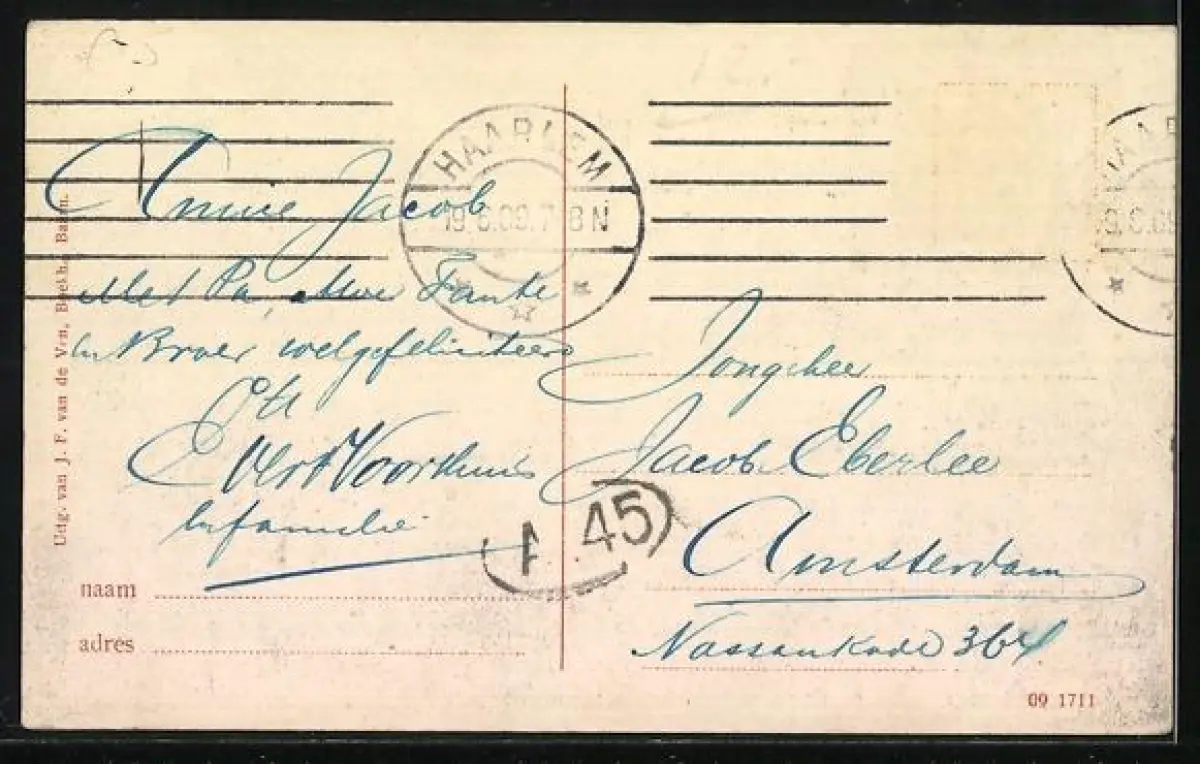 HAARLEM
19.6.09.7-8 N
Amice Jacob
Met Pa, Moe, Tante
en Broer welgefeliciteerd
Evert Voorthuis
en familie
Uitg. van J. F. van de Ven, Boekh., Baarn.
naam
adres
A 45
Jongeheer
Jacob Eberlee
Amsterdam
Nassaukade 364
09 1711
HAAR
9.6.09